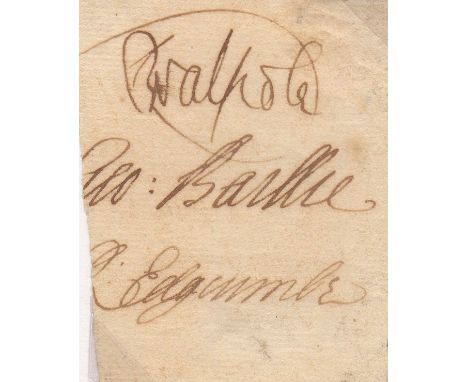 RWalpole
Geo: Baillie
R: Edgcumbe